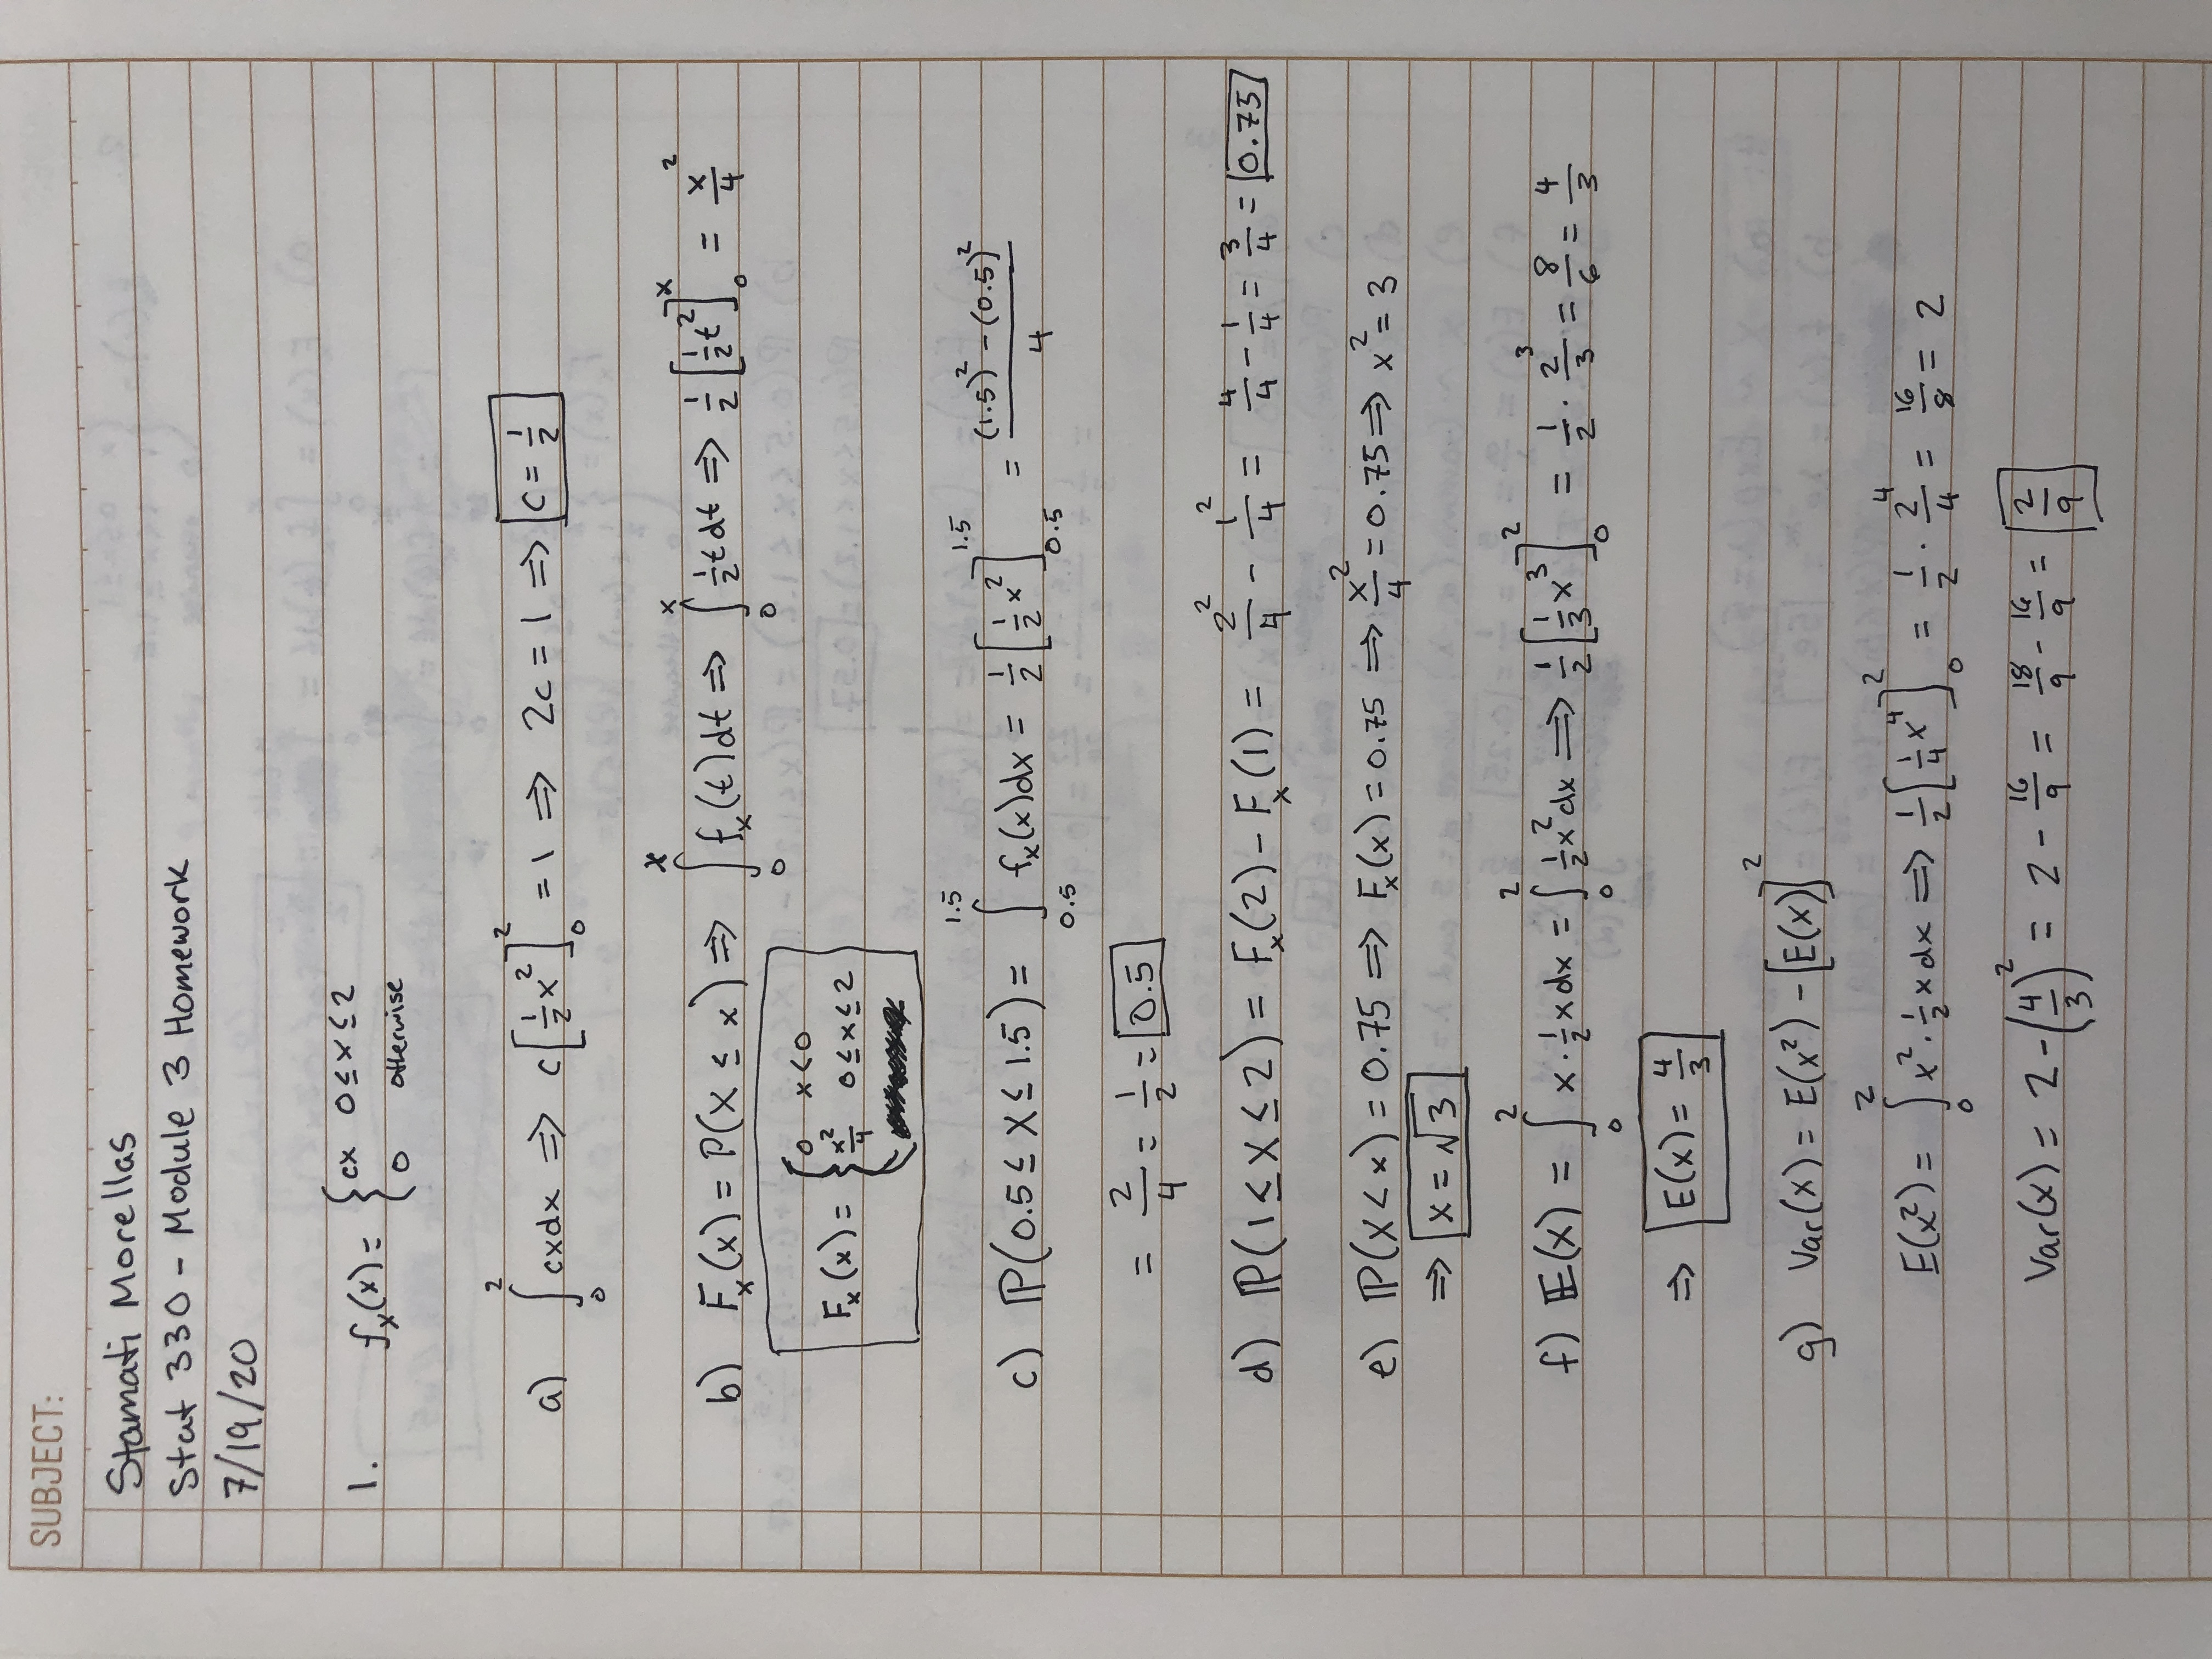 SUBJECT:
Stamati Morellas
Stat 330 - Module 3 Homework
7/19/20
1. fₓ(x) = { cx 0 ≤ x ≤ 2
0 otherwise
a) ∫₀² cxdx ⇒ c[½x²]₀² = 1 ⇒ 2c = 1 ⇒ c = ½
b) Fₓ(x) = P(X ≤ x) ⇒ ∫₀ˣ fₓ(t)dt ⇒ ∫₀ˣ ½t dt ⇒ ½[½t²]₀ˣ = x²/4
Fₓ(x) = { 0 x<0
x²/4 0 ≤ x ≤ 2
c) ℙ(0.5 ≤ X ≤ 1.5) = ∫_{0.5}^{1.5} fₓ(x)dx = ½[½x²]_{0.5}^{1.5} = ((1.5)² - (0.5)²)/4
= 2/4 = 1/2 = 0.5
d) ℙ(1 ≤ X ≤ 2) = Fₓ(2) - Fₓ(1) = 2²/4 - 1²/4 = 4/4 - 1/4 = 3/4 = 0.75
e) ℙ(X < x) = 0.75 ⇒ Fₓ(x) = 0.75 ⇒ x²/4 = 0.75 ⇒ x² = 3
⇒ x = √3
f) 𝔼(X) = ∫₀² x · ½x dx = ∫₀² ½x² dx ⇒ ½[⅓x³]₀² = 1/2 · 2³/3 = 8/6 = 4/3
⇒ E(x) = 4/3
g) Var(x) = E(x²) - [E(x)]²
E(x²) = ∫₀² x² · ½x dx ⇒ ½[¼x⁴]₀² = 1/2 · 2⁴/4 = 16/8 = 2
Var(x) = 2 - (4/3)² = 2 - 16/9 = 18/9 - 16/9 = 2/9